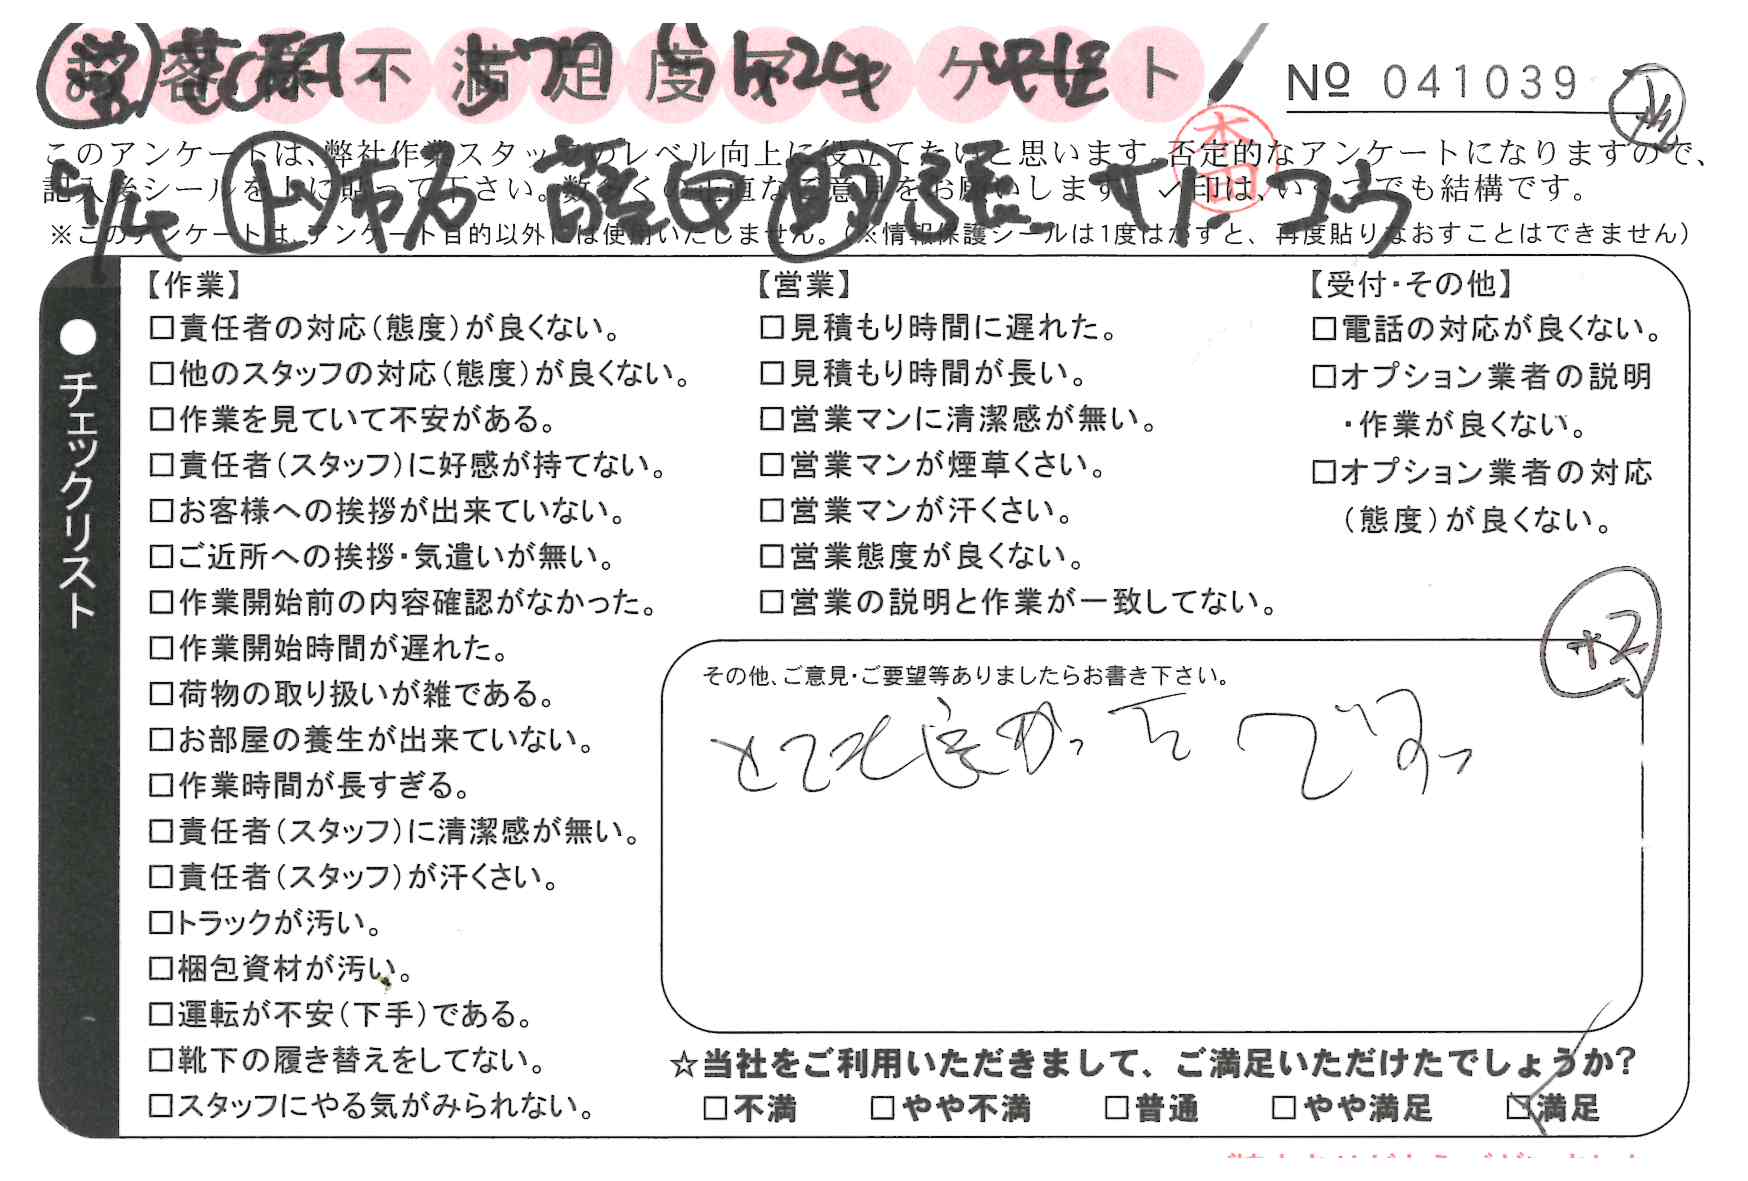 お客様不満足度アンケート
№ 041039
このアンケートは、弊社作業スタッフのレベル向上に役立てたいと思います。否定的なアンケートになりますので、
記入後シールを上に貼って下さい。数多くの正直なご意見をお願いします。✓印は、いくつでも結構です。
※このアンケートは、アンケート目的以外には使用いたしません。(※情報保護シールは1度はがすと、再度貼りなおすことはできません)
●チェックリスト
【作業】
□責任者の対応(態度)が良くない。
□他のスタッフの対応(態度)が良くない。
□作業を見ていて不安がある。
□責任者(スタッフ)に好感が持てない。
□お客様への挨拶が出来ていない。
□ご近所への挨拶・気遣いが無い。
□作業開始前の内容確認がなかった。
□作業開始時間が遅れた。
□荷物の取り扱いが雑である。
□お部屋の養生が出来ていない。
□作業時間が長すぎる。
□責任者(スタッフ)に清潔感が無い。
□責任者(スタッフ)が汗くさい。
□トラックが汚い。
□梱包資材が汚い。
□運転が不安(下手)である。
□靴下の履き替えをしてない。
□スタッフにやる気がみられない。
【営業】
□見積もり時間に遅れた。
□見積もり時間が長い。
□営業マンに清潔感が無い。
□営業マンが煙草くさい。
□営業マンが汗くさい。
□営業態度が良くない。
□営業の説明と作業が一致してない。
【受付・その他】
□電話の対応が良くない。
□オプション業者の説明
・作業が良くない。
□オプション業者の対応
(態度)が良くない。
+2
その他、ご意見・ご要望等ありましたらお書き下さい。
とても良かったです。
☆当社をご利用いただきまして、ご満足いただけたでしょうか?
□不満 □やや不満 □普通 □やや満足 ☑満足